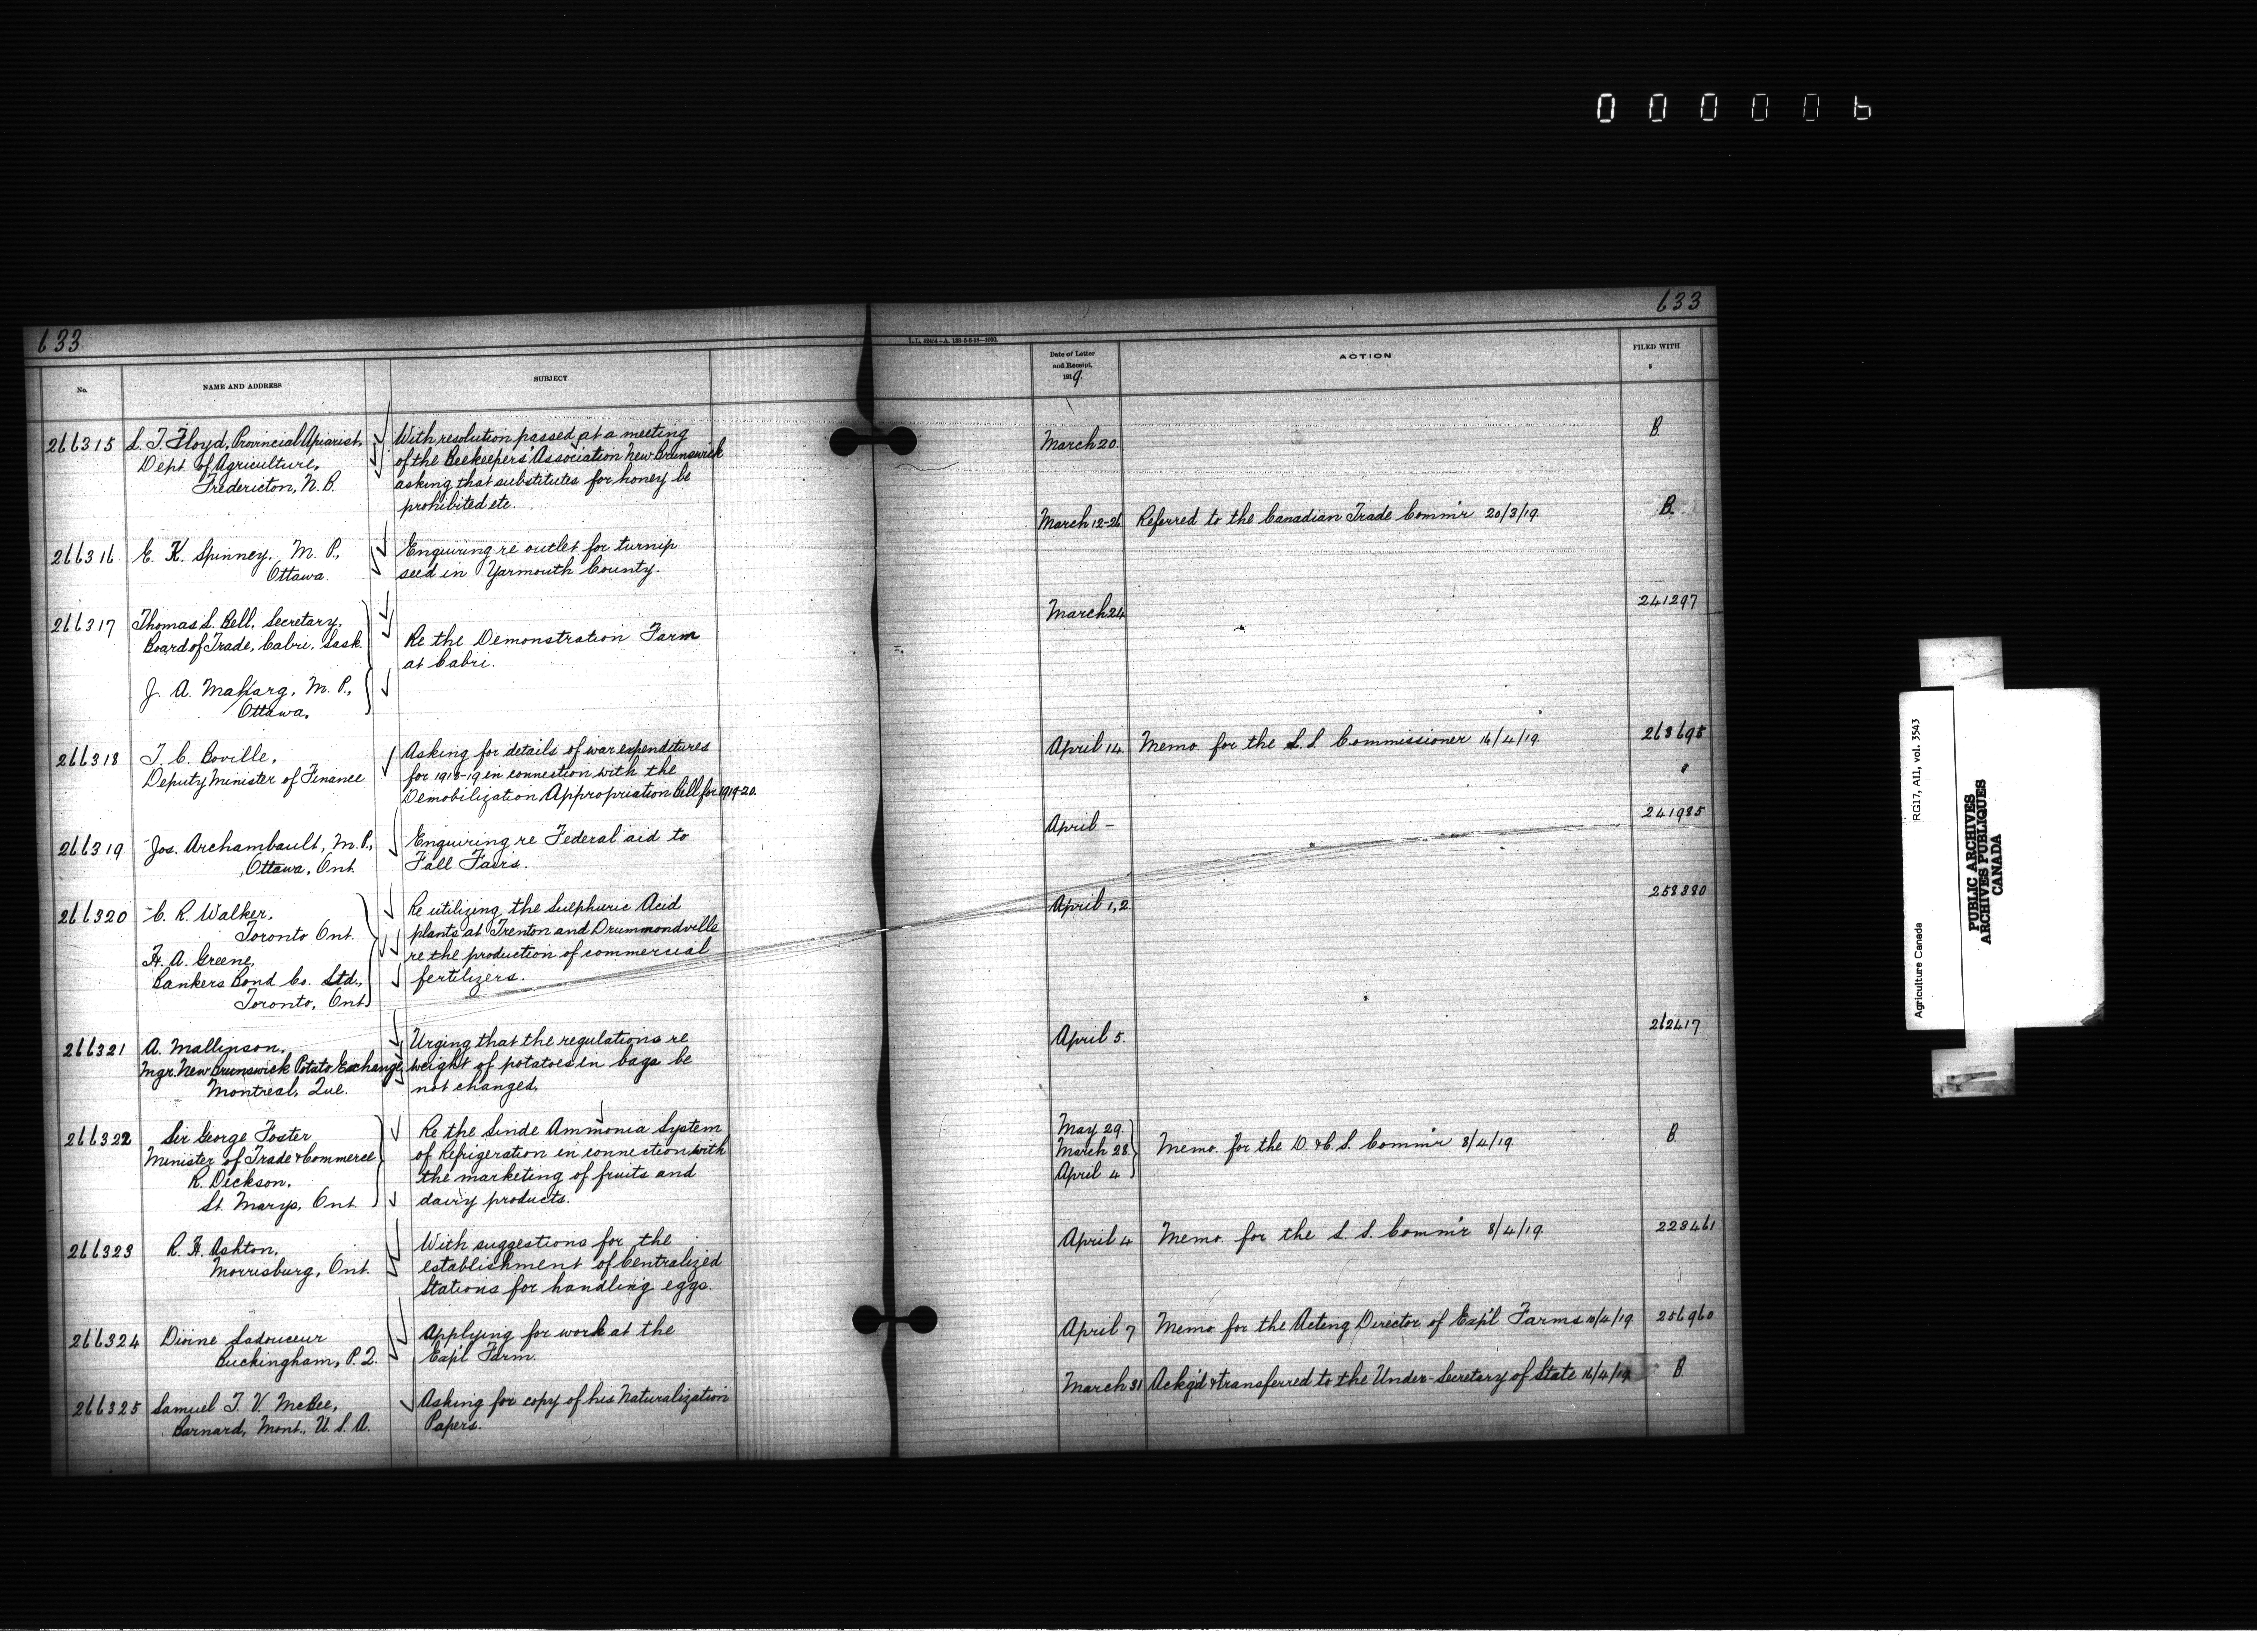 000006
633
No.
NAME AND ADDRESS
SUBJECT
266315
L. T. Floyd, Provincial Apiarist,
Dept. of Agriculture,
Fredericton, N. B.
With resolution passed at a meeting
of the Beekeepers' Association New Brunswick
asking that substitutes for honey be
prohibited etc.
266316
E. K. Spinney, M. P.,
Ottawa.
Enquiring re outlet for turnip
seed in Yarmouth County.
266317
Thomas S. Bell, Secretary,
Board of Trade, Cabri, Sask.
J. A. Maharg, M. P.,
Ottawa.
Re the Demonstration Farm
at Cabri.
266318
T. C. Boville,
Deputy Minister of Finance
Asking for details of war expenditures
for 1918-19 in connection with the
Demobilization Appropriation Bill for 1919-20.
266319
Jos. Archambault, M. P.,
Ottawa, Ont.
Enquiring re Federal aid to
Fall Fairs.
266320
C. R. Walker,
Toronto Ont.
H. A. Greene,
Bankers Bond Co. Ltd.,
Toronto, Ont.
Re utilizing the Sulphuric Acid
plants at Trenton and Drummondville
re the production of commercial
fertilizers.
266321
A. Mallinson,
Mgr. New Brunswick Potato Exchange,
Montreal, Que.
Urging that the regulations re
weight of potatoes in bags be
not changed.
266322
Sir George Foster
Minister of Trade & Commerce
R. Dickson,
St. Marys, Ont.
Re the Linde Ammonia System
of Refrigeration in connection with
the marketing of fruits and
dairy products.
266323
R. H. Ashton,
Morrisburg, Ont.
With suggestions for the
establishment of Centralized
Stations for handling eggs.
266324
Ladouceur
Buckingham, P. Q.
Applying for work at the
Exp'l Farm.
266325
Samuel T. V. McBee,
Barnard, Mont., U. S. A.
Asking for copy of his Naturalization
Papers.
633
Date of Letter
and Receipt,
1919.
ACTION
FILED WITH
March 20.
B.
March 12-26
Referred to the Canadian Trade Comm'r 20/3/19.
B.
March 24
241297
April 14
Memo. for the L.S. Commissioner 16/4/19.
268695
April -
241985
April 1, 2.
258380
April 5.
262417
May 29.
March 28.
April 4
Memo. for the D. & C. S. Comm'r 8/4/19.
B.
April 4
Memo. for the L. S. Comm'r 8/4/19.
228461
April 7
Memo for the Acting Director of Exp'l Farms 10/4/19.
256960
March 31
Ackg'd & transferred to the Under-Secretary of State 16/4/19
B.
Agriculture Canada
RG17, AII, vol. 3543
PUBLIC ARCHIVES
ARCHIVES PUBLIQUES
CANADA